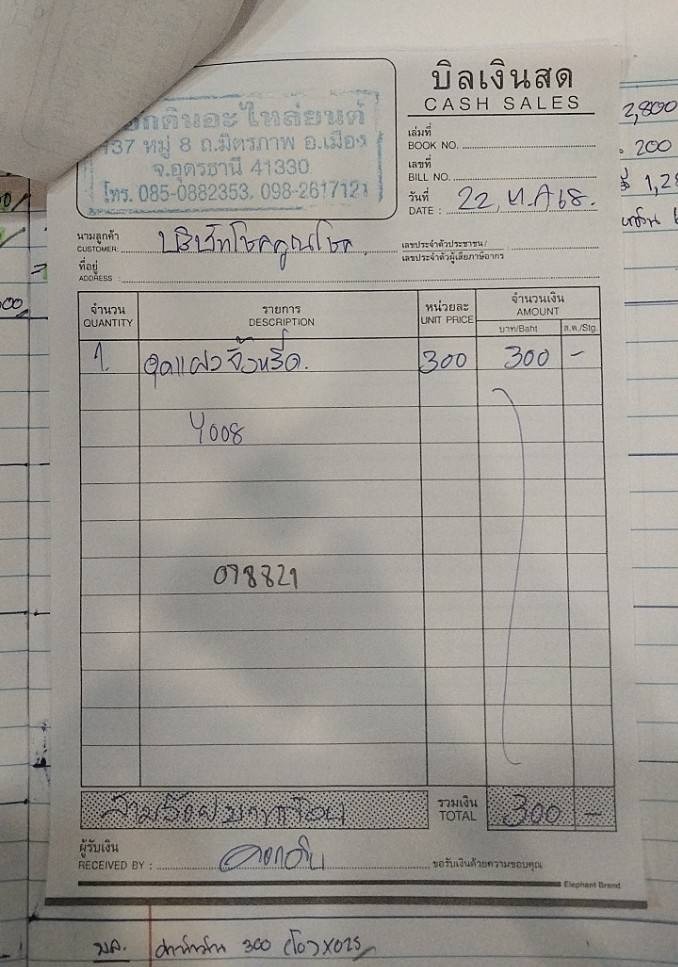 บิลเงินสด
CASH SALES
137 หมู่ 8 ถ.มิตรภาพ อ.เมือง
จ.อุดรธานี 41330
โทร. 085-0882353, 098-2617121
เล่มที่
BOOK NO.
เลขที่
BILL NO.
วันที่
DATE : 22, ม.ค 68.
นามลูกค้า
CUSTOMER บริษัทโชคคูณโชค
เลขประจำตัวประชาชน/
เลขประจำตัวผู้เสียภาษีอากร
ที่อยู่
ADDRESS
จำนวน รายการ หน่วยละ จำนวนเงิน
QUANTITY DESCRIPTION UNIT PRICE AMOUNT
บาท/Baht ส.ต./Stg.
1. ชุดแผงจังหรีด. 300 300 -
4008
098821
สามร้อยบาทถ้วน รวมเงิน
TOTAL 300 -
ผู้รับเงิน
RECEIVED BY : ขอรับเงินด้วยความขอบคุณ
Elephant Brand
2,800
200
300